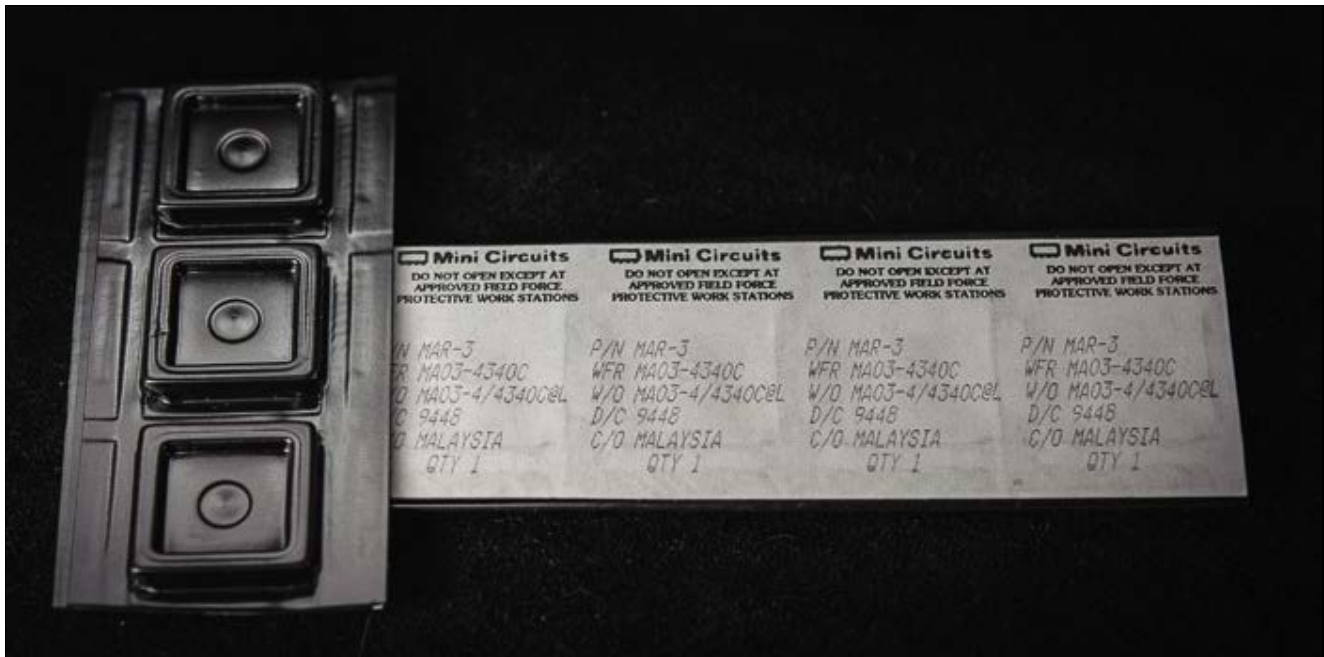 Mini Circuits
DO NOT OPEN EXCEPT AT
APPROVED FIELD FORCE
PROTECTIVE WORK STATIONS
MAR-3
MA03-4340C
MA03-4/4340C@L
9448
MALAYSIA
QTY 1
Mini Circuits
DO NOT OPEN EXCEPT AT
APPROVED FIELD FORCE
PROTECTIVE WORK STATIONS
P/N MAR-3
WFR MA03-4340C
W/O MA03-4/4340C@L
D/C 9448
C/O MALAYSIA
QTY 1
Mini Circuits
DO NOT OPEN EXCEPT AT
APPROVED FIELD FORCE
PROTECTIVE WORK STATIONS
P/N MAR-3
WFR MA03-4340C
W/O MA03-4/4340C@L
D/C 9448
C/O MALAYSIA
QTY 1
Mini Circuits
DO NOT OPEN EXCEPT AT
APPROVED FIELD FORCE
PROTECTIVE WORK STATIONS
P/N MAR-3
WFR MA03-4340C
W/O MA03-4/4340C@L
D/C 9448
C/O MALAYSIA
QTY 1